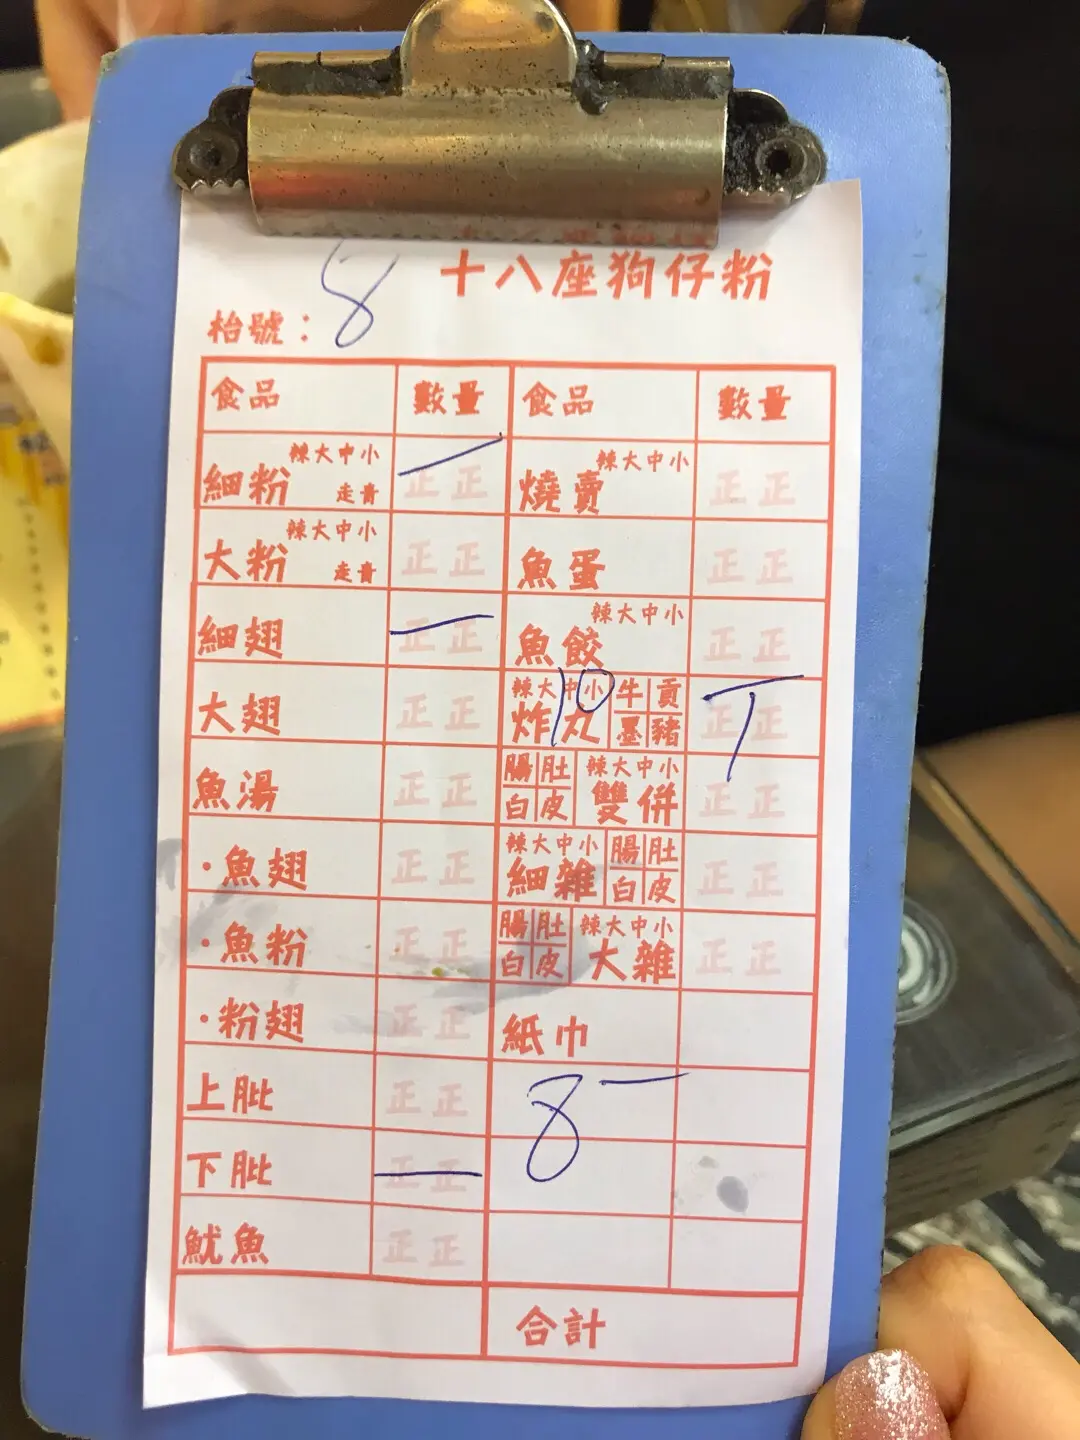 十八座狗仔粉
枱號： 8
食品 數量 食品 數量
細粉 辣大中小 走青 正正 一 燒賣 辣大中小 正正
大粉 辣大中小 走青 正正 魚蛋 正正
細翅 正正 一 魚餃 辣大中小 正正
大翅 正正 炸丸 辣大中小 牛 貢 墨 豬 10 正正 T
魚湯 正正 腸 肚 白 皮 辣大中小 雙併 正正
·魚翅 正正 辣大中小 細雜 腸 肚 白 皮 正正
·魚粉 正正 腸 肚 白 皮 辣大中小 大雜 正正
·粉翅 正正 紙巾
上肶 正正 8 一
下肶 正正 一
魷魚 正正
合計